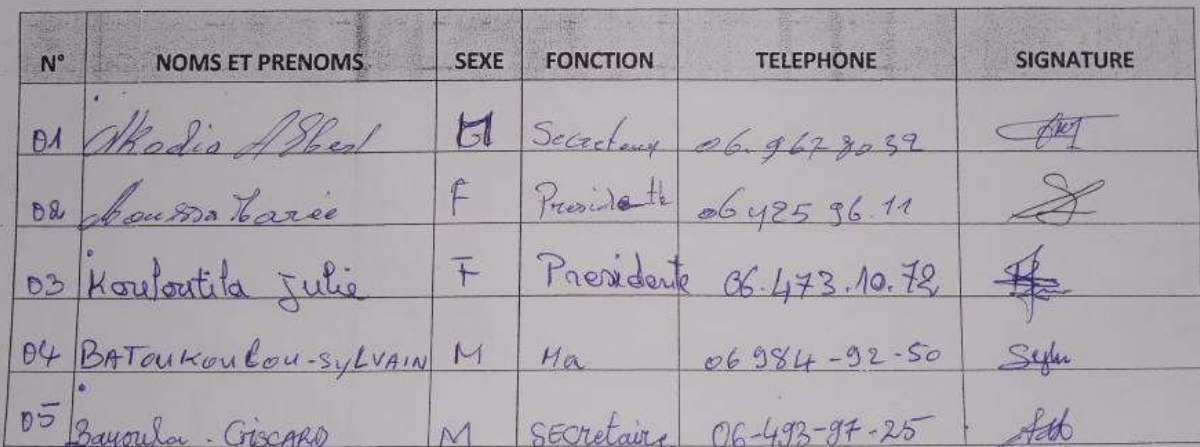 N° NOMS ET PRENOMS SEXE FONCTION TELEPHONE SIGNATURE
01 Akodia Albert Secretaire 06.967 80 32
02 Moussa Marie F Presidente 06 425 96.11
03 Kouloutila Julie F Presidente 06.473.10.72
04 BATOUKOULOU-SYLVAIN M Ma 06 984-92-50 Sylv
05 Bayoula - GISCARD M SECretaire 06-493-97-25